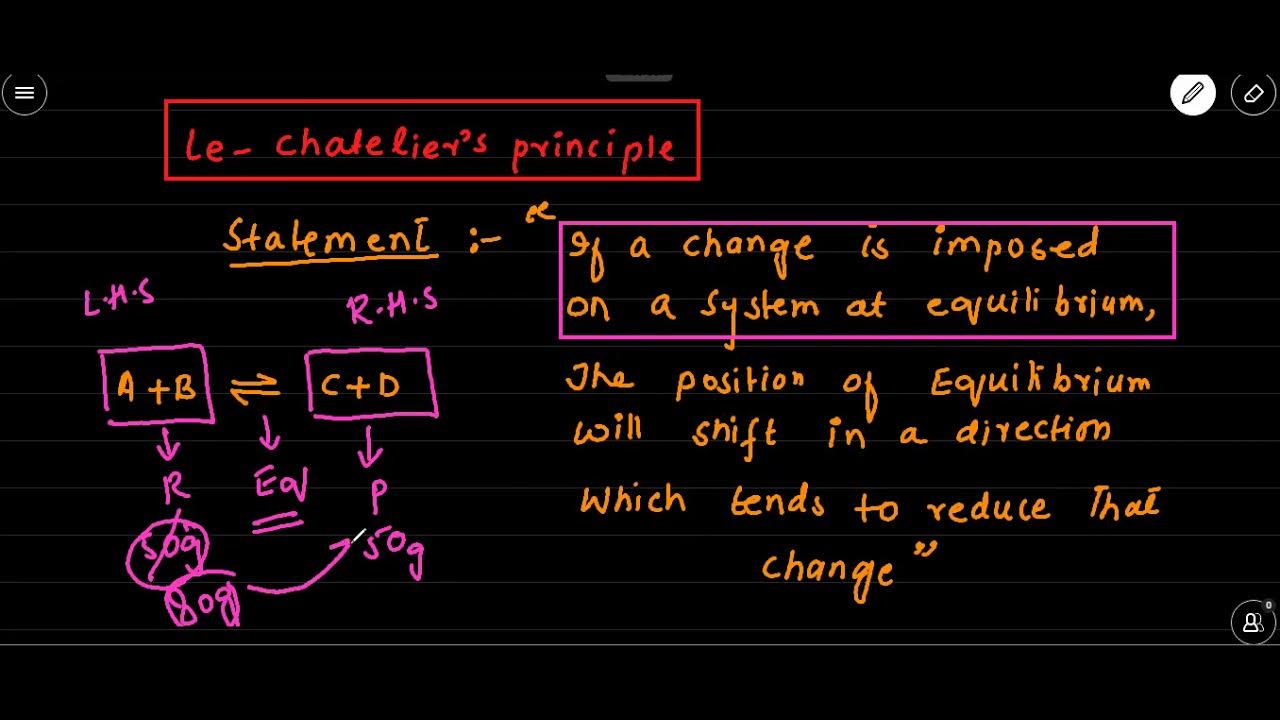 Le- Chatelier's principle
Statement :- "
If a change is imposed
on a system at equilibrium,
The position of Equilibrium
will shift in a direction
which tends to reduce That
change"
L.H.S
R.H.S
A+B ⇌ C+D
R Eq P
50g 50g
80g
0